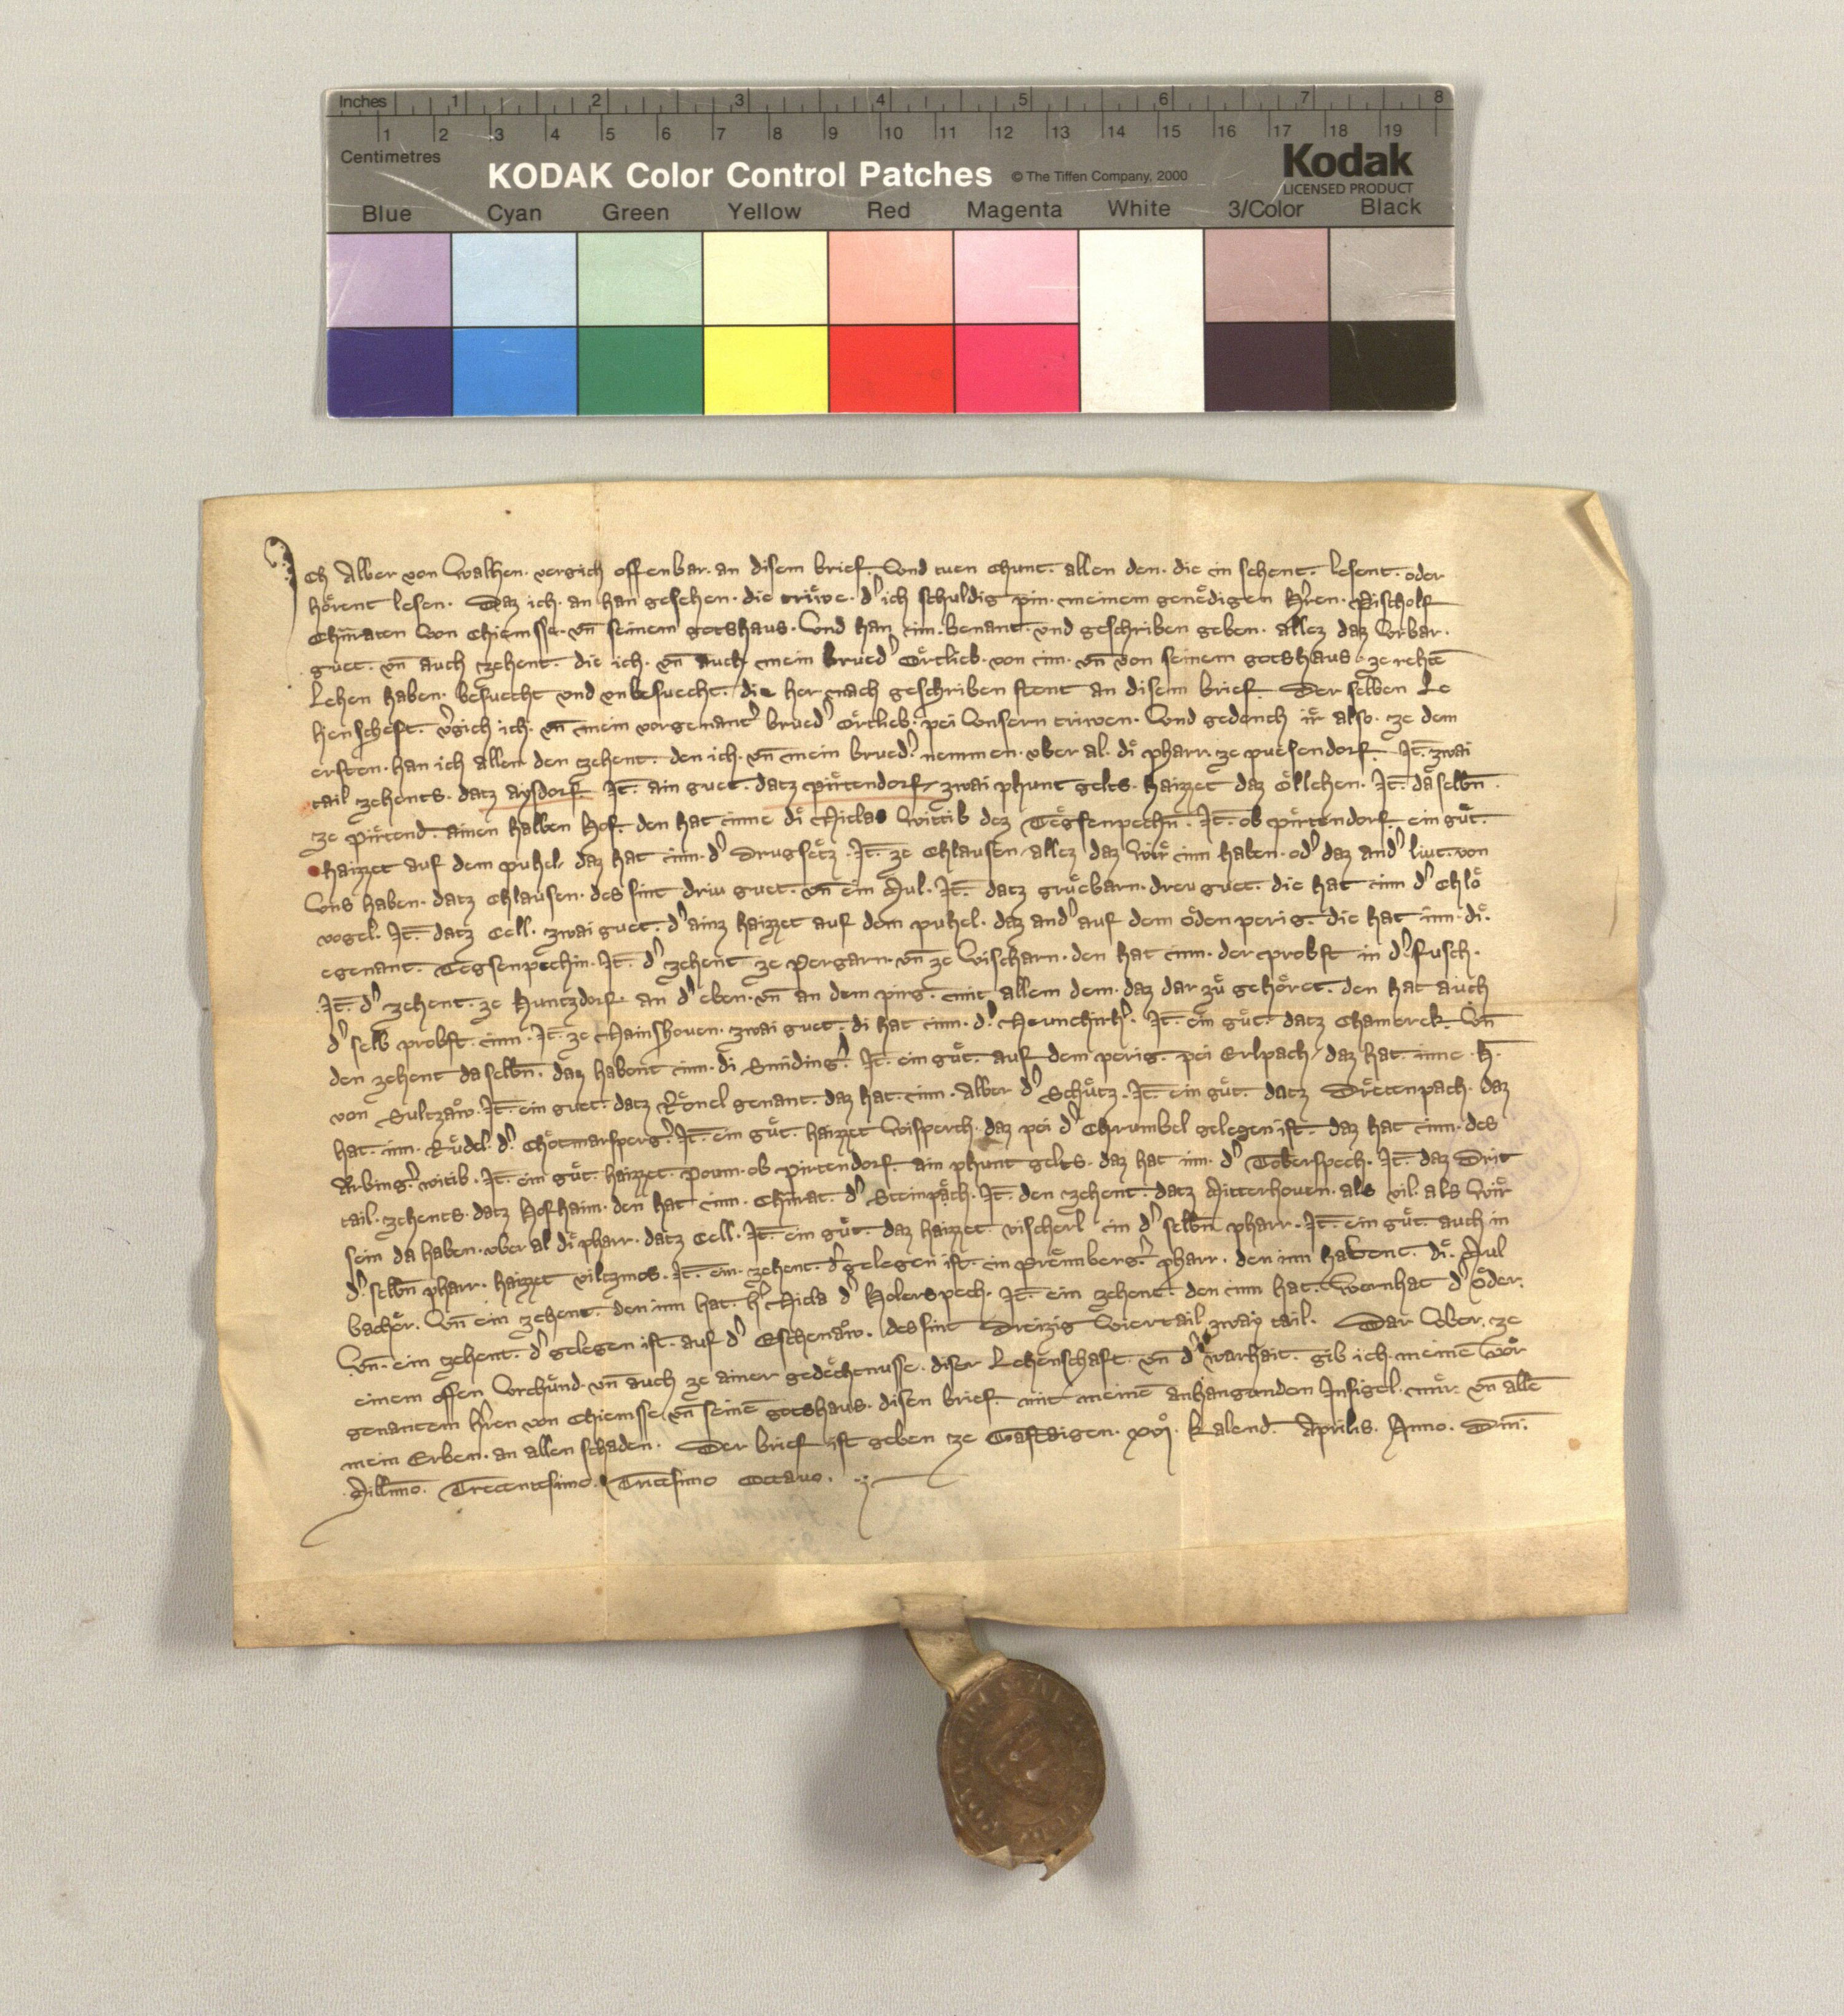 Inches 1 2 3 4 5 6 7 8
1 2 3 4 5 6 7 8 9 10 11 12 13 14 15 16 17 18 19
Centimetres
KODAK Color Control Patches © The Tiffen Company, 2000 Kodak
LICENSED PRODUCT
Blue Cyan Green Yellow Red Magenta White 3/Color Black
Ich Alber von Walhen. vergich offenbar. an disem brief. Vnd tuen chunt. allen den. die in sehent. lesent. oder
hoͤrent lesen. Daz ich. an han gesehen. die triwe. d' ich schuldig pin. meinem genedigen H'ren. Pischolf
Chunraten Von Chiemsse. vn̄ seinem gotshaus. Vnd han im. benant. vnd geschriben geben. allez daz Vrbar.
guet. vn̄ auch zehent. die ich. vn̄ auch mein brued' Ortlieb. von im. vn̄ von seinem gotshaus. ze rehtē
Lehen haben. besuecht vnd vnbesuecht. die her nach geschriben stent an disem brief. Der selben Le
henscheft. v'gich ich. vn̄ mein vorgenant' brued' Ortlieb. pei Vnsern triwen. Vnd gedench ir also. ze dem
ersten. han ich allen den zehent. den ich. vn̄ mein brued'. nemmen. vber al. di pharr. ze puesendorf. It̄. zwai
tail zehents. datz aysdorf. It̄. ain guet. datz pirtendorf, zwai phunt gelts. haizzet daz ollehen. It̄. daselbn̄.
ze pirtend. ainen halben Hof. den hat inne di Niclas Wittib dez Tegsenpechn̄. It̄. ob pirtendorf. ein guͤt.
haizzet auf dem puhel. daz hat inn. d' Drugsetz. It̄. ze Chlausen. allez daz Wir inn haben. od' daz and' liut. von
Vns haben. datz Chlausen. des sint driu guet. vn̄ ein Mul. It̄. datz gruebarn. dreu guet. die hat inn d' Chlo
vogel. It̄. datz Cell. zwai guet. d' ainz haizzet auf dem puhel. daz and' auf dem oden perig. die hat inn. di.
egenant. Tegsenpechin. It̄. d' zehent ze Pergarn. vn̄ ze Vischarn. den hat inn. der probst in d' fusch.
It̄. d' zehent. ze Huntzdorf. an d' eben. vn̄ an dem pirg. mit allem dem. daz dar zuͤ gehoͤret. den hat auch
d' selb probst. inn. It̄. ze Mainshouen. zwai guet. di hat inn. d' Neunchirh'. It̄. ein guͤt. datz Chamerek. Vn̄
den zehent daselbn̄. daz habent inn. di Smiding'. It̄. ein guͤt. auf dem perig. pei Erlpach, daz hat. inne. H̄.
von Sultzaw. It̄. ein guet. datz Ronel genant. daz hat. inn. Alber d' Schuͤtz. It̄. ein guͤt. datz Dretenpach. daz
hat. inn. Ruͤdel. d' Chotmarsperg'. It̄. ein guͤt. haizzet Wisperch. daz pei d' Chrumbel gelegen ist. daz hat inn. des
Arbing'. witib. It̄. ein guͤt. haizzet. Poum. ob Pirtendorf. ain phunt gelts. daz hat inn. d' Toberspech. It̄. daz Drit
tail. zehents. datz Hofhaim. den hat inn. Chunrat. d' Steinpach. It̄. den zehent. datz Mitterhouen. als vil. als Wir
sein da haben. vber al di pharr. datz Cell. It̄. ein guͤt. daz haizzet vischerl in d' selbn̄ pharr. It̄. ein guͤt. auch in
d' selbn̄ pharr. haizzet viltzmos. It̄. ein. zehent. d' gelegen ist. in Premberg'. pharr. den inn habent. di. Mul
bacher. Vn̄ ein zehent. den inn hat. h' Nicla d' Holerspech. It̄. ein zehent. den inn hat. Wernhat d' Oder.
Vn̄. ein zehent. d' gelegen ist. auf d' Eschenaw. des sint Dreizig Viertail zway tail. Dar Vber. ze
einem offen Vrchund. vn̄ auch ze ainer gedechtnusse. diser Lehenschaft. vn̄ d' warhait. gib ich. meinē Vor
genantem H'ren von Chiemsse vn̄ seinē gotshaus. disen brief. mit meinē anhangundem Insigel. mir. vn̄ allē
mein Erben. an allen schaden. Der brief ist geben ze Gastaigen. xvi. kalend. Aprilis. Anno. Dm̄.
Mill'imo. Trecentesimo. Tricesimo Octauo.